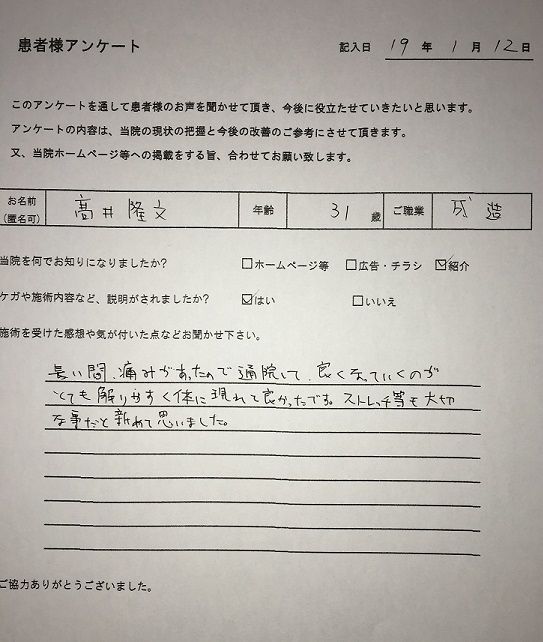 患者様アンケート
記入日 19 年 1 月 12 日
このアンケートを通して患者様のお声を聞かせて頂き、今後に役立たせていきたいと思います。
アンケートの内容は、当院の現状の把握と今後の改善のご参考にさせて頂きます。
又、当院ホームページ等への掲載をする旨、合わせてお願い致します。
お名前(匿名可) 高井隆文 年齢 31 歳 ご職業 造
当院を何でお知りになりましたか? □ホームページ等 □広告・チラシ ☑紹介
ケガや施術内容など、説明がされましたか? ☑はい □いいえ
施術を受けた感想や気が付いた点などお聞かせ下さい。
長い間、痛みがあったので通院して、良くなっていくのが
とても解りやすく体に現れて良かったです。ストレッチ等も大切
な事だと新めて思いました。
ご協力ありがとうございました。